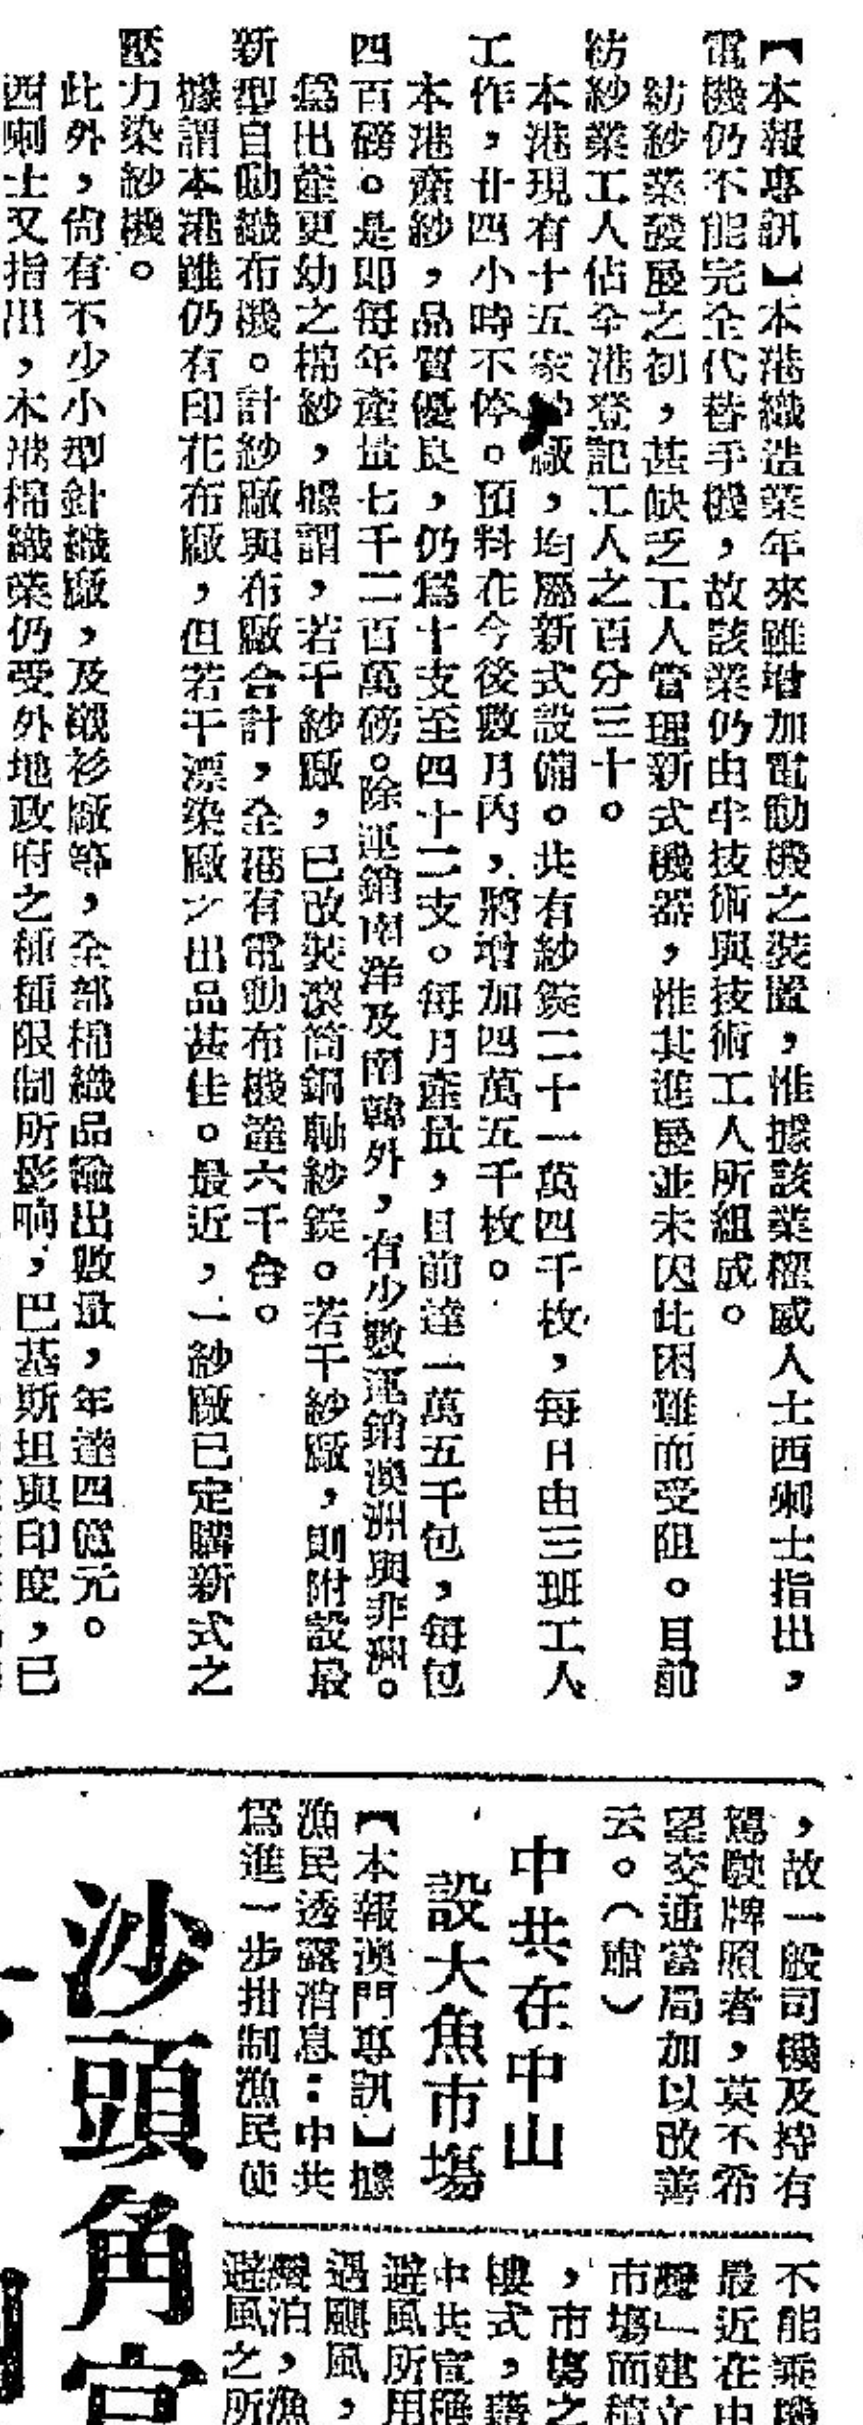 【本報專訊】本港織造業年來雖增加電動機之裝置，惟據該業權威人士西喇士指出，
電機仍不能完全代替手機，故該業仍由半技術與技術工人所組成。
紡紗業發展之初，甚缺乏工人管理新式機器，惟其進展並未因此困難而受阻。目前
紡紗業工人佔全港登記工人之百分三十。
本港現有十五家紗廠，均屬新式設備。共有紗錠二十一萬四千枚，每日由三班工人
工作，廿四小時不停。預料在今後數月內，將增加四萬五千枚。
本港產紗，品質優良，仍爲十支至四十二支。每月產量，目前達一萬五千包，每包
四百磅。是即每年產量七千二百萬磅。除運銷南洋及南韓外，有少數運銷澳洲與非洲。
爲出產更幼之棉紗，據謂，若干紗廠，已改裝滾筒鋼軸紗錠。若干紗廠，則附設最
新型自動織布機。計紗廠與布廠合計，全港有電動布機達六千台。
據謂本港雖仍有印花布廠，但若干漂染廠之出品甚佳。最近，一紗廠已定購新式之
壓力染紗機。
此外，尙有不少小型針織廠，及襯衫廠等，全部棉織品輸出數量，年達四億元。
西喇士又指出，本港棉織業仍受外地政府之種種限制所影响，巴基斯坦與印度，已
，故一般司機及持有
駕駛牌照者，莫不希
望交通當局加以改善
云。（肅）
中共在中山
設大魚市塲
【本報澳門專訊】據
漁民透露消息：中共
爲進一步拑制漁民使
不能乘機
最近在中
建立
市塲而積
，市塲之
樓式，藉
中共宣稱
避風所用
遇颶風，
灣泊，漁
避風之所
沙頭角宮